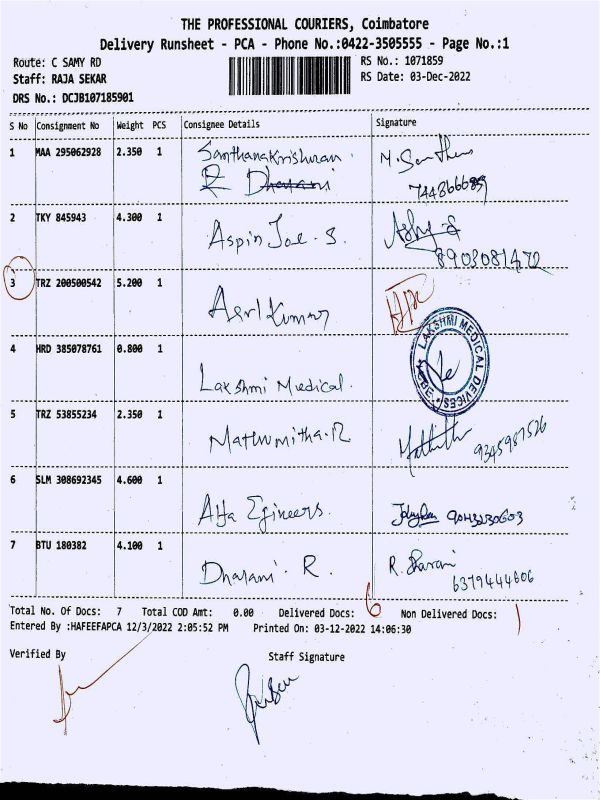 THE PROFESSIONAL COURIERS, Coimbatore
Delivery Runsheet - PCA - Phone No.:0422-3505555 - Page No.:1
Route: C SAMY RD
RS No.: 1071859
Staff: RAJA SEKAR
RS Date: 03-Dec-2022
DRS No.: DCJB107185901
S No Consignment No Weight PCS Consignee Details Signature
1 MAA 295062928 2.350 1 Santhanakrishnan
R Dharani
2 TKY 845943 4.300 1 Aspin Joe. S.
8903081472
3 TRZ 200500542 5.200 1 Kumar
4 HRD 385078761 0.800 1 Lakshmi Medical.
LAKSHMI MEDICAL DEVICES * CBE *
5 TRZ 53855234 2.350 1 Mathumitha.R
9345987526
6 SLM 308692345 4.600 1
7 BTU 180382 4.100 1 Dharani. R. R. Dharani
6379444606
Total No. Of Docs: 7 Total COD Amt: 0.00 Delivered Docs: 6 Non Delivered Docs: 1
Entered By :HAFEEFAPCA 12/3/2022 2:05:52 PM Printed On: 03-12-2022 14:06:30
Verified By Staff Signature